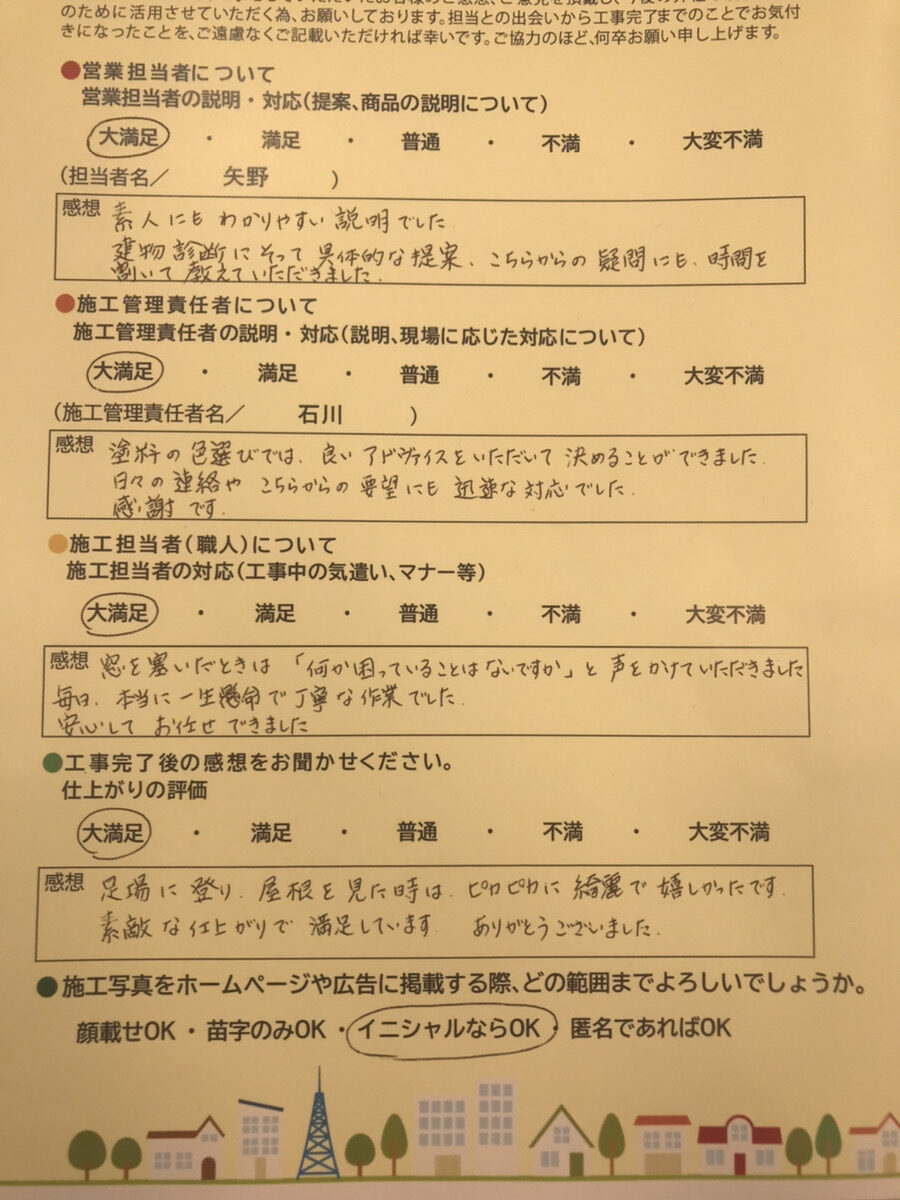 のために活用させていただく為、お願いしております。担当との出会いから工事完了までのことでお気付
きになったことを、ご遠慮なくご記載いただければ幸いです。ご協力のほど、何卒お願い申し上げます。
●営業担当者について
営業担当者の説明・対応(提案、商品の説明について)
大満足 ・ 満足 ・ 普通 ・ 不満 ・ 大変不満
(担当者名／ 矢野 )
感想 素人にも わかりやすい 説明でした.
建物診断にそって 具体的な提案. こちらからの 疑問にも. 時間を
割いて 教えていただきました.
●施工管理責任者について
施工管理責任者の説明・対応(説明、現場に応じた対応について)
大満足 ・ 満足 ・ 普通 ・ 不満 ・ 大変不満
(施工管理責任者名／ 石川 )
感想 塗料の 色選びでは. 良い アドヴァイスをいただいて 決めることができました.
日々の 連絡や こちらからの 要望にも 迅速な 対応でした.
感謝 です.
●施工担当者(職人)について
施工担当者の対応(工事中の気遣い、マナー等)
大満足 ・ 満足 ・ 普通 ・ 不満 ・ 大変不満
感想 窓を塞いだときは 「何か困っていることはないですか」と 声をかけていただきました
毎日. 本当に 一生懸命で 丁寧な作業でした.
安心して お任せできました
●工事完了後の感想をお聞かせください。
仕上がりの評価
大満足 ・ 満足 ・ 普通 ・ 不満 ・ 大変不満
感想 足場に 登り. 屋根を見た時は. ピカピカに 綺麗で 嬉しかったです.
素敵な仕上がりで 満足しています. ありがとうございました.
●施工写真をホームページや広告に掲載する際、どの範囲までよろしいでしょうか。
顔載せOK・苗字のみOK・イニシャルならOK・匿名であればOK